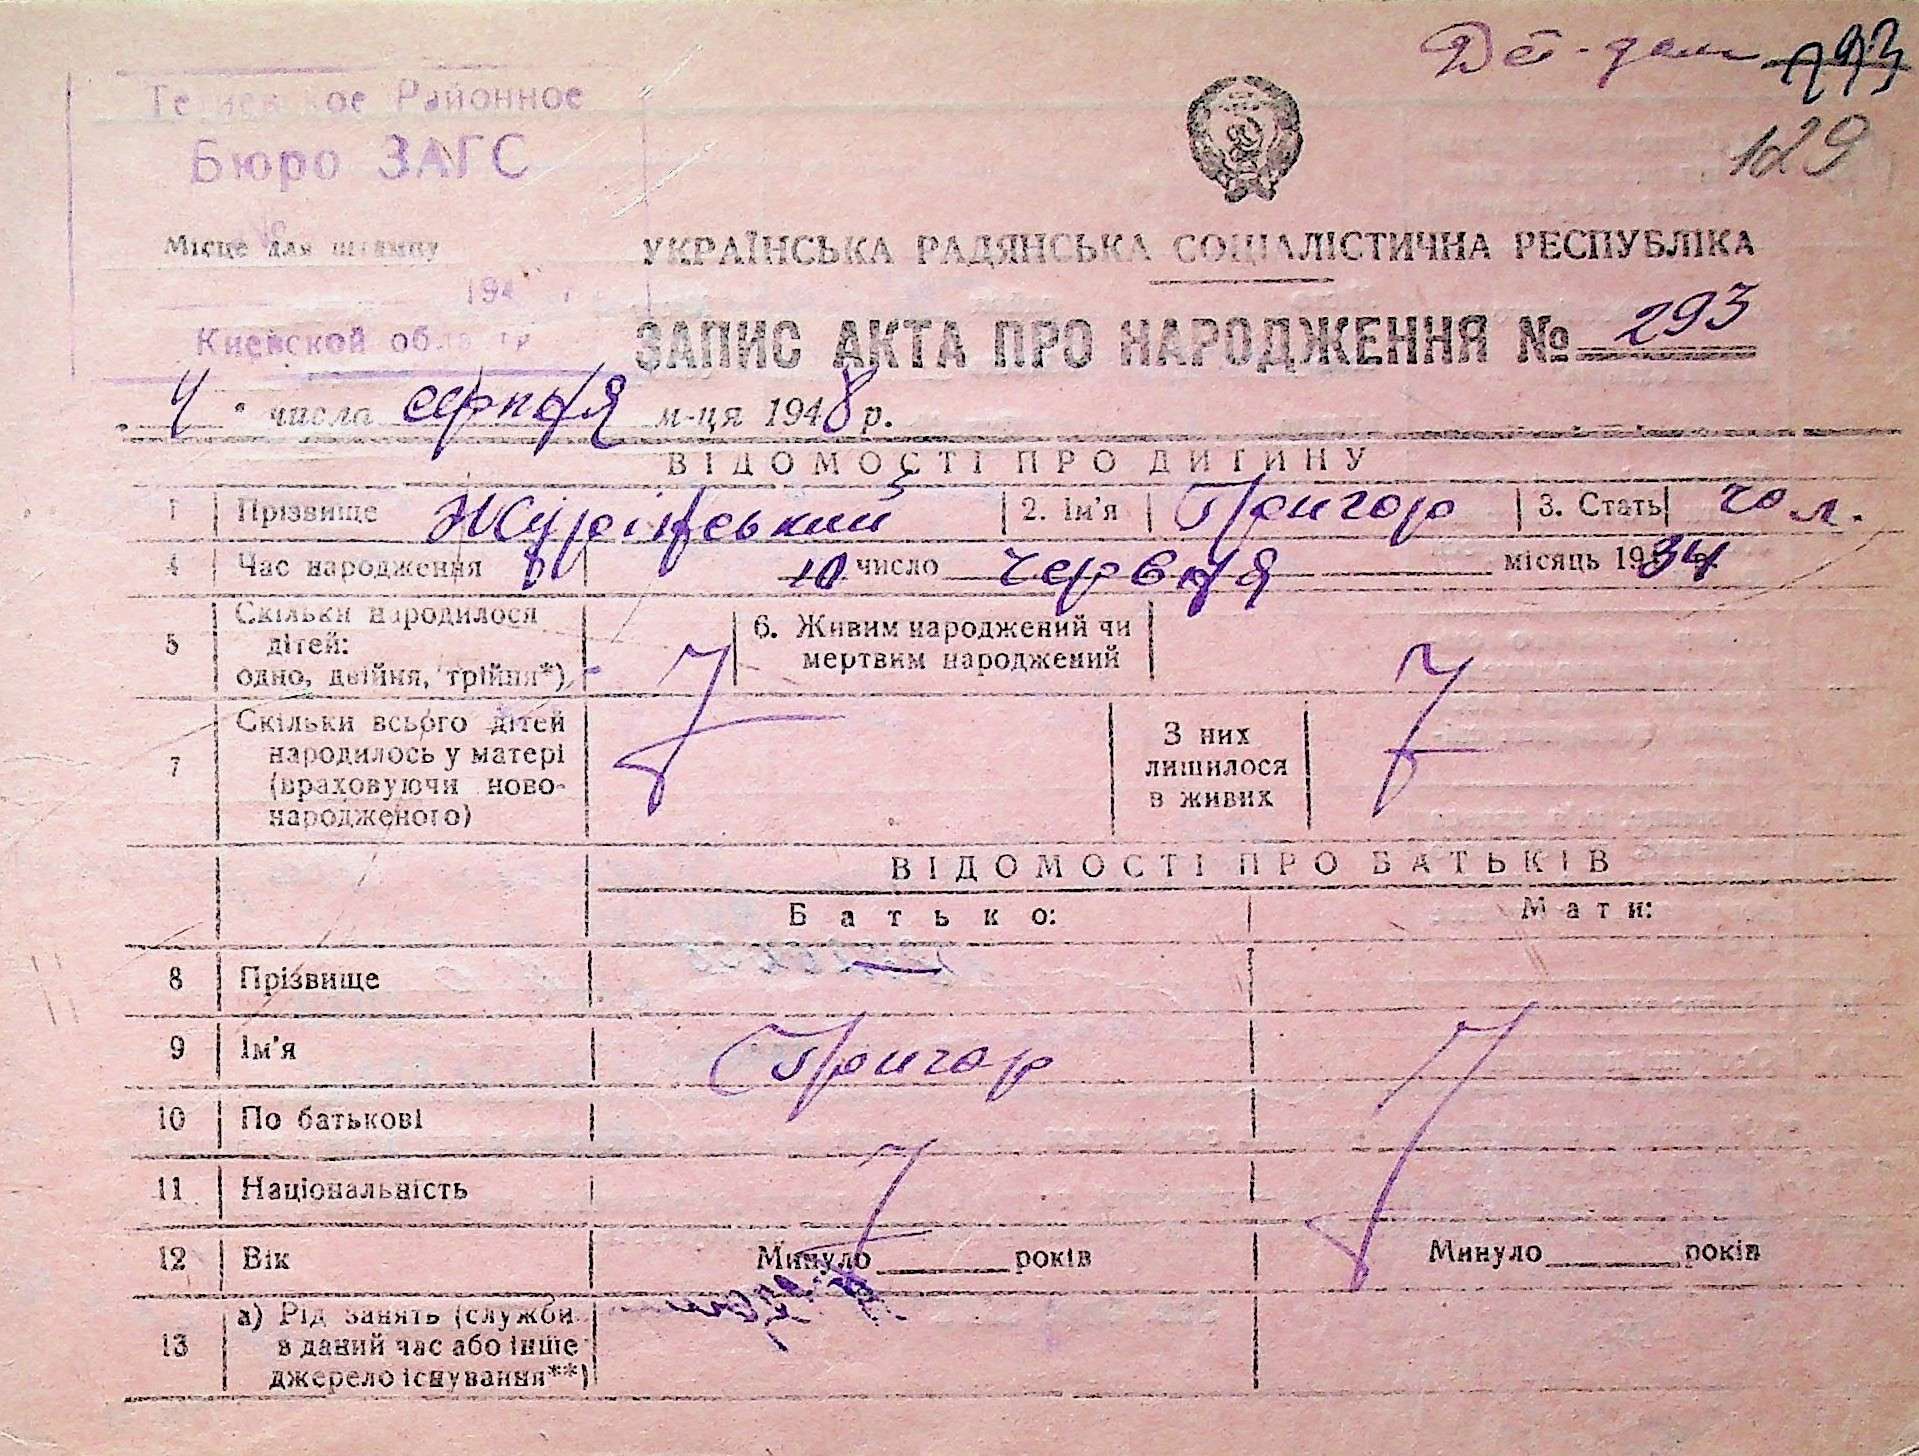 Дет-дом 293
129
Районное
Бюро ЗАГС
Місце для штампу
194
Киевской области
УКРАЇНСЬКА РАДЯНСЬКА СОЦІАЛІСТИЧНА РЕСПУБЛІКА
ЗАПИС АКТА ПРО НАРОДЖЕННЯ № 293
4 • числа серпня м-ця 1948 р.
ВІДОМОСТІ ПРО ДИТИНУ
1 Прізвище 2. Ім'я Григор 3. Стать чол.
4 Час народження 10 число червня місяць 1934
5 Скільки народилося
дітей:
одно, двійня, трійня*)
6. Живим народжений чи
мертвим народжений
7 Скільки всього дітей
народилось у матері
(враховуючи ново-
народженого)
З них
лишилося
в живих
ВІДОМОСТІ ПРО БАТЬКІВ
Батько: Мати:
8 Прізвище —
9 Ім'я Григор
10 По батькові
11 Національність
12 Вік Минуло______років Минуло______років
13 а) Рід занять (служби
в даний час або інше
джерело існування**)